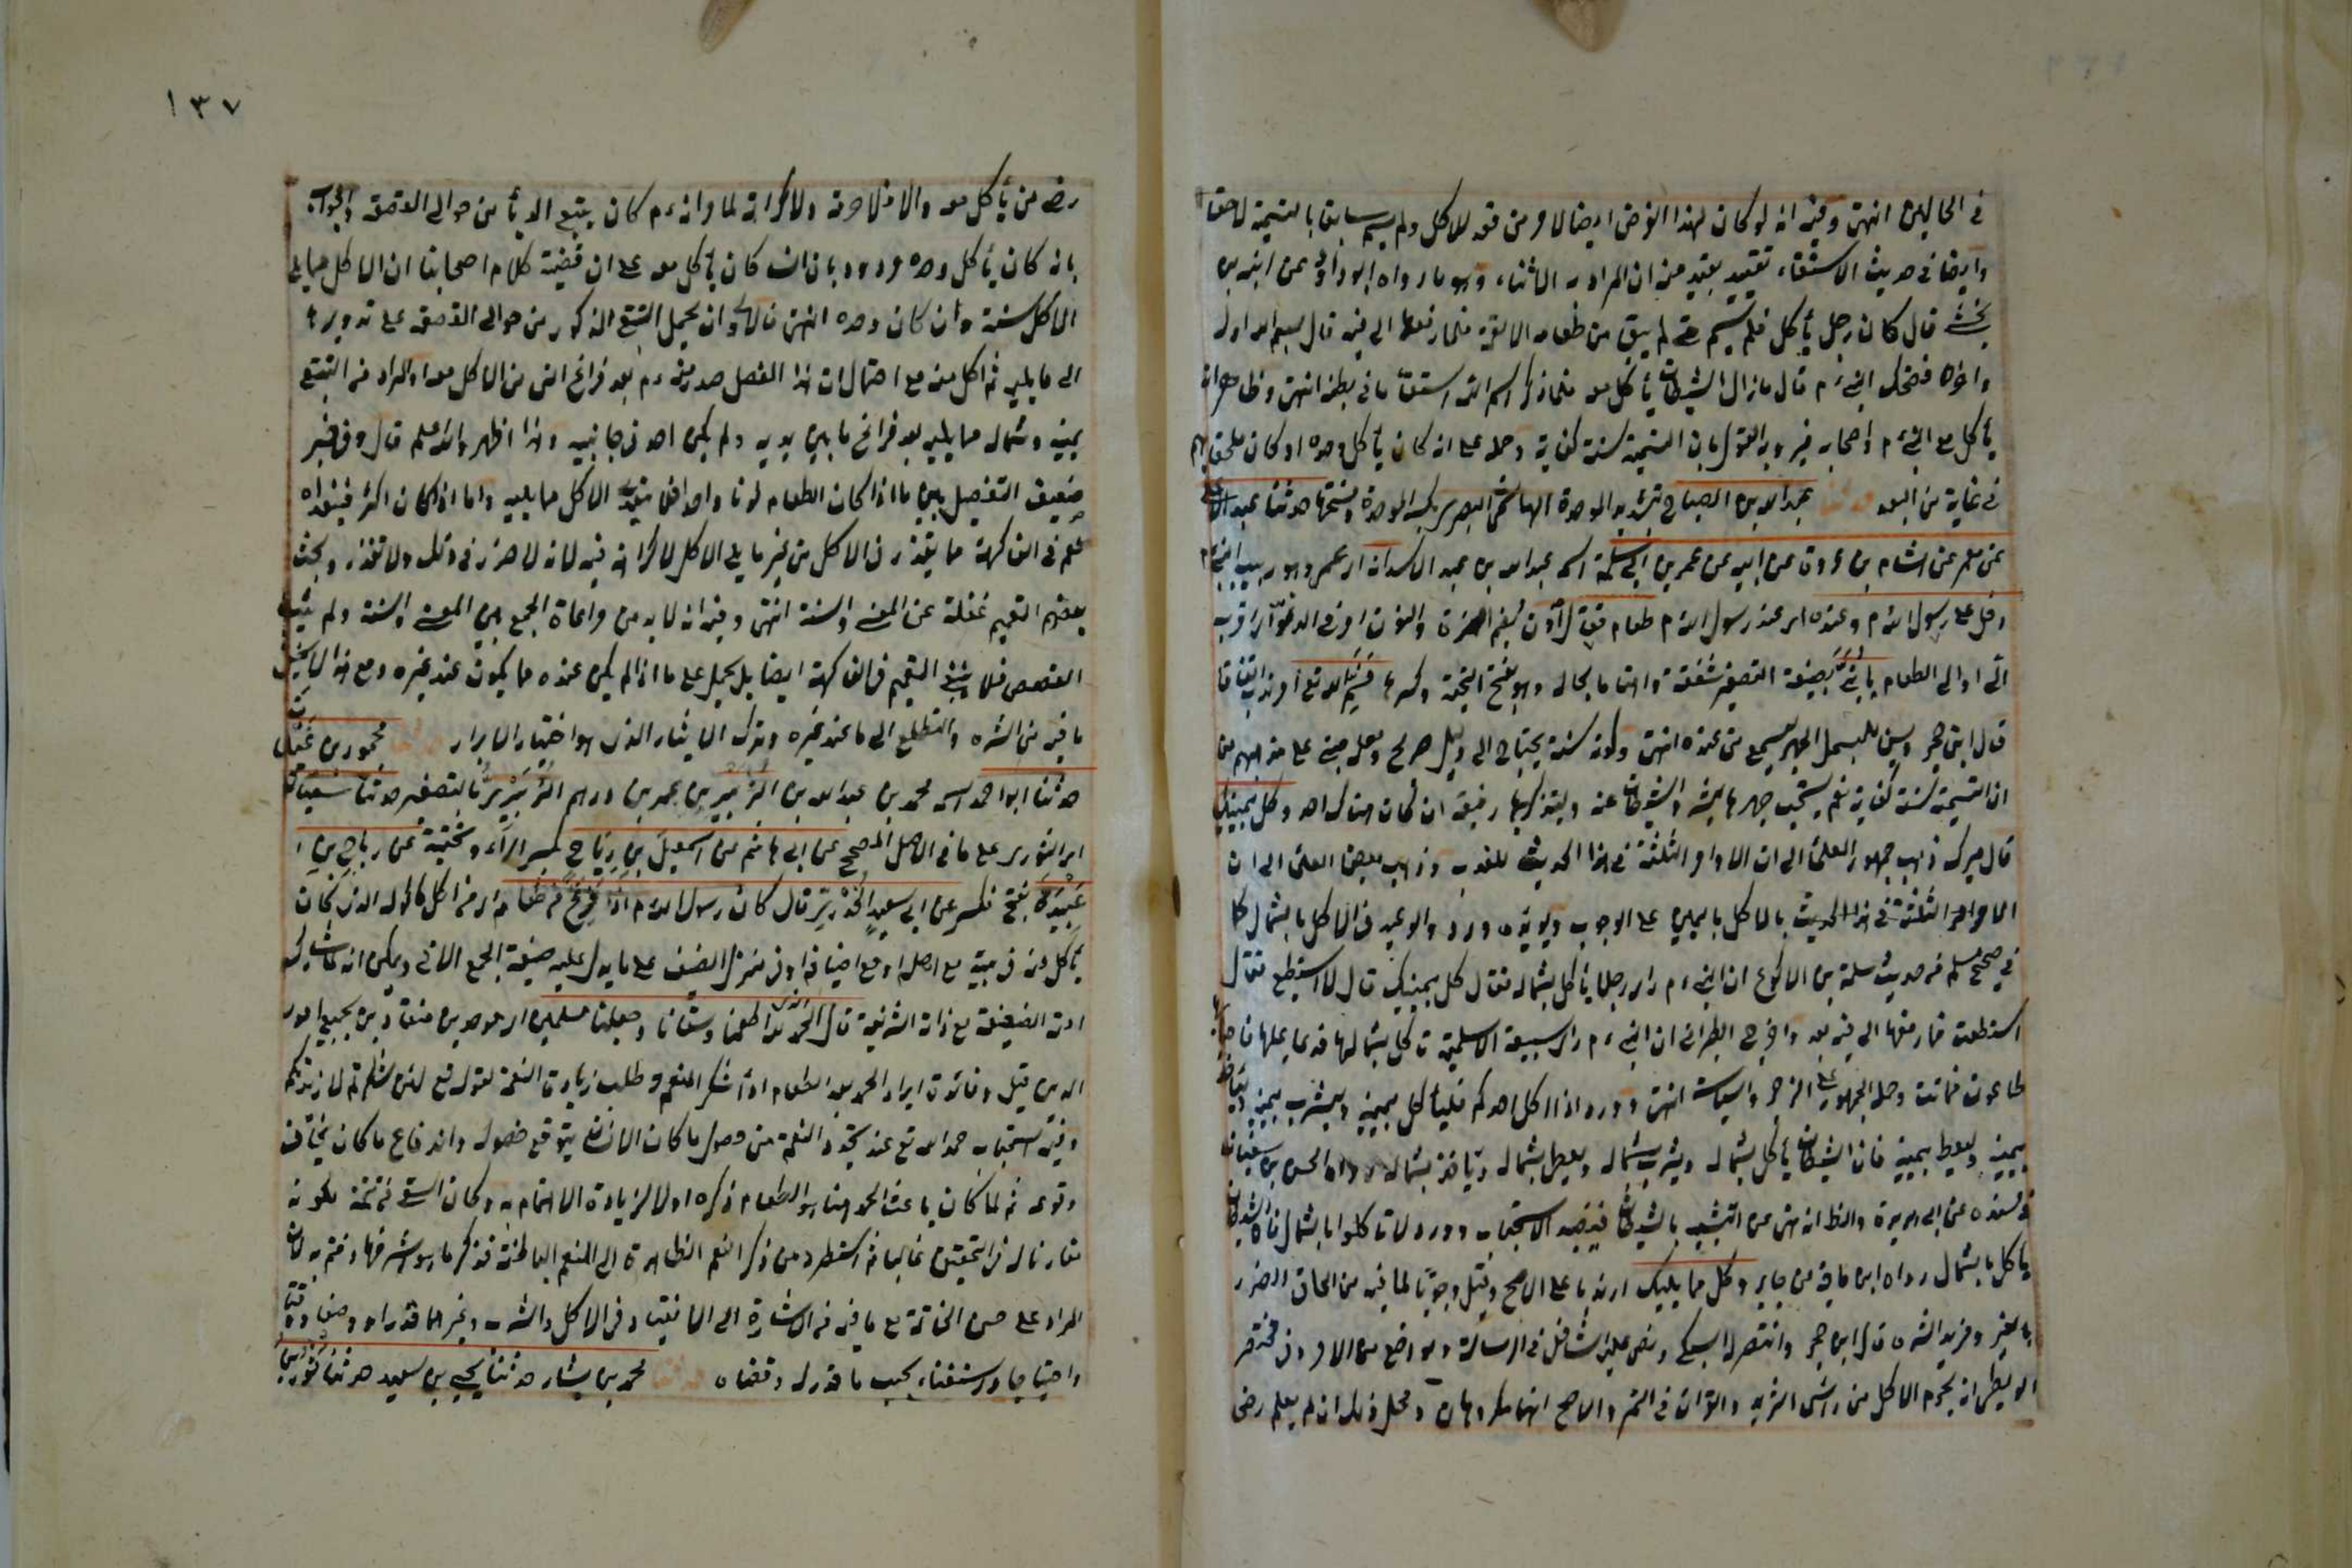 في الحالين انتهى وفيه انه لو كان لهذا الغرض ايضا لامر من قعد للاكل ولم يسم سابقا بالتسمية لاحقا
وايضا في حديث الاستقاء تقييد يفيد من ان المراد به الاثناء وهو ما رواه ابو داود عن امية بن
مخشي قال كان رجل يأكل فلم يسم حتى لم يبق من طعامه الا لقمة فلما رفعها الى فيه قال بسم الله اوله
واخره فضحك النبي ءم قال ما زال الشيطان يأكل معه فلما ذكر اسم الله استقاء ما في بطنه انتهى وظاهره انه
يأكل مع النبي ءم واصحابه فيرد به القول بان التسمية سنة كفاية وحمله على انه كان يأكل وحده او كان ملحق بهم
في غاية من البعد حدثنا عبد الله بن الصباح بتشديد الموحدة الهاشمي البصري بكسر الموحدة وفتحها حدثنا عبد الاعلى
عن معمر عن هشام بن عروة عن ابيه عن عمر بن ابي سلمة اسمه عبد الله بن عبد الاسد انه اي عمر وهو ربيب النبي ءم
دخل على رسول الله م وعنده اي عند رسول الله م طعام فقال ادن بضم الهمزة والنون امر من الدنو اي اقرب
الي او الى الطعام يا بني بصيغة التصغير شفقة واهتماما بحاله وهو بفتح التحتية وكسرها فسم الله تع امر ندب اتفاقا
قال ابن حجر ويسن للمبسمل الجهر ليسمع من عنده انتهى وكونه سنة يحتاج الى دليل صريح ولعله مبني على مذهبهم من
ان التسمية سنة كفاية نعم يستحب جهرها ليتنبه والشيطان عنه وليتذكر بها رفيقه ان كان هناك احد وكل بيمينك
قال ميرك ذهب جمهور العلماء الى ان الاوامر الثلثة في هذا الحديث للندب وذهب بعض العلماء الى ان
الاوامر الثلثة في هذا الحديث بالاكل باليمين على الوجوب ويؤيده ورود الوعيد في الاكل بالشمال كما
في صحيح مسلم من حديث سلمة بن الاكوع ان النبي ءم راى رجلا يأكل بشماله فقال كل بيمينك قال لا استطيع فقال
استطعت فما رفعها الى فيه بعد واخرج الطبراني ان النبي ءم راى سبيعة الاسلمية تاكل بشمالها فدعا عليها فاصابها
طاعون فماتت وحمله الجمهور على الزجر والسياسة انتهى وورد اذا اكل احدكم فليأكل بيمينه وليشرب بيمينه وليأخذ
بيمينه وليعط بيمينه فان الشيطان يأكل بشماله ويشرب بشماله ويعطي بشماله ويأخذ بشماله رواه الحسن بن سفيان
في مسنده عن ابي هريرة والظ انه نهى عن التشبه بالشيطان فيفيد الاستحباب وورد لا تاكلوا بالشمال فان الشيطان
ياكل بالشمال رواه ابن ماجة عن جابر وكل مما يليك اي ندبا على الاصح وقيل وجوبا لما فيه من الحاق الضرر
بالغير ومزيد الشره قال ابن حجر وانتصر له السبكي ونص عليه الشافعي في الرسالة ومواضع من الام وفي مختصر
البويطي انه يحرم الاكل من راس الثريد والقران في التمر والاصح انهما مكروهان ومحل ذلك ان لم يعلم رضى
١٣٧
رضى من يأكل معه والا فلا حرمة ولا كراهة لما مر انه ءم كان يتتبع الدباء من حوالي القصعة والجواب
بانه كان يأكل وحده مردود بان انسا كان يأكل معه على ان قضية كلام اصحابنا ان الاكل مما يلي
الاكل سنة وان كان وحده انتهى فالاولى ان يحمل التتبع المذكور من حوالي القصعة على تدويرها
الى ما يليه ثم اكل منه مع احتمال ان هذا الفعل صدر منه ءم بعد فراغ انس من الاكل معه او المراد من التتبع
يمينه وشماله مما يليه بعد فراغ ما بين يديه ولم يكن احد في جانبيه وهذا اظهر والله اعلم قال وفي خبر
ضعيف التفصيل بين ما اذا كان الطعام لونا واحدا فلا يتعدى الاكل مما يليه واما اذا كان اكثر فيتعداه
نعم في الفاكهة مما يتعذر في الاكل من غير ما يلي الاكل لا كراهة فيه لانه لا ضرر في ذلك ولا تقذر وبحث
بعضهم التعميم غفلة عن المعنى والسنة انتهى وفيه انه لا بد من مراعاة الجمع بين المعنى والسنة ولم يثبت
التخصص فلا ينبغي التعميم في الفاكهة ايضا بل يحمل على ما اذا لم يكن عنده مما يكون عند غيره ومع هذا لا يخفى
ما فيه من الشره والتطلع الى ما عند غيره وترك الايثار الذي هو اختيار الابرار حدثنا محمود بن غيلان
حدثنا ابو احمد اسمه محمد بن عبد الله بن الزبير بن عمر بن درهم الزبيري بالتصغير حدثنا سفيان
اي الثوري على ما في الاصل المصحح عن ابي هاشم عن اسمعيل بن رياح بكسر الراء وتحتية عن رباح بن
عبيدة بفتح فكسر عن ابي سعيد الخدري قال كان رسول الله م اذا فرغ من طعامه اي من اكل ماكوله الذي كان
يأكل منه في بيته مع اهله او مع اضيافه او في منزل المضيف على ما يدل عليه صيغة الجمع الاتي ويمكن انه شارك
امته الضعيفة مع ذاته الشريفة قال الحمد لله الذي اطعمنا وسقانا وجعلنا مسلمين اي موحدين منقادين بجميع امور
الدين قيل وفائدة ايراد الحمد بعد الطعام اداء شكر المنعم وطلب زيادة النعمة لقوله تع لئن شكرتم لازيدنكم
وفيه استحباب حمد الله تع عند تجدد النعمة من حصول ما كان الانسان يتوقع حصوله واندفاع ما كان يخاف
وقوعه ثم لما كان باعث الحمد هنا هو الطعام ذكره اولا لزيادة الاهتمام به وكان السقي من تتمته لكونه
مقارنا له في التحقيق غالبا ثم استطرد من ذكر النعم الظاهرة الى النعم الباطنة فذكر ما هو اشرفها وختم به لان
المراد على حسن الخاتمة مع ما فيه من الاشارة الى الانقياد في الاكل والشرب وغيرهما قدرا ووصفا ووقتا
واحتياجا واستغناء بحسب ما قدره وقضاه حدثنا محمد بن بشار حدثنا يحيى بن سعيد حدثنا ثور بن